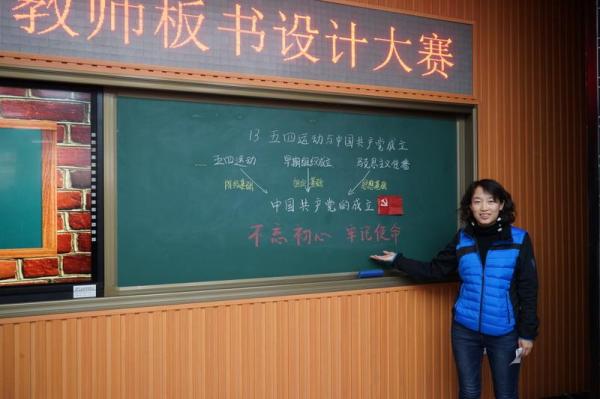 教师板书设计大赛
13 五四运动与中国共产党成立
五四运动 早期组织成立 马克思主义传播
阶级基础 组织基础 思想基础
中国共产党的成立
不忘初心 牢记使命